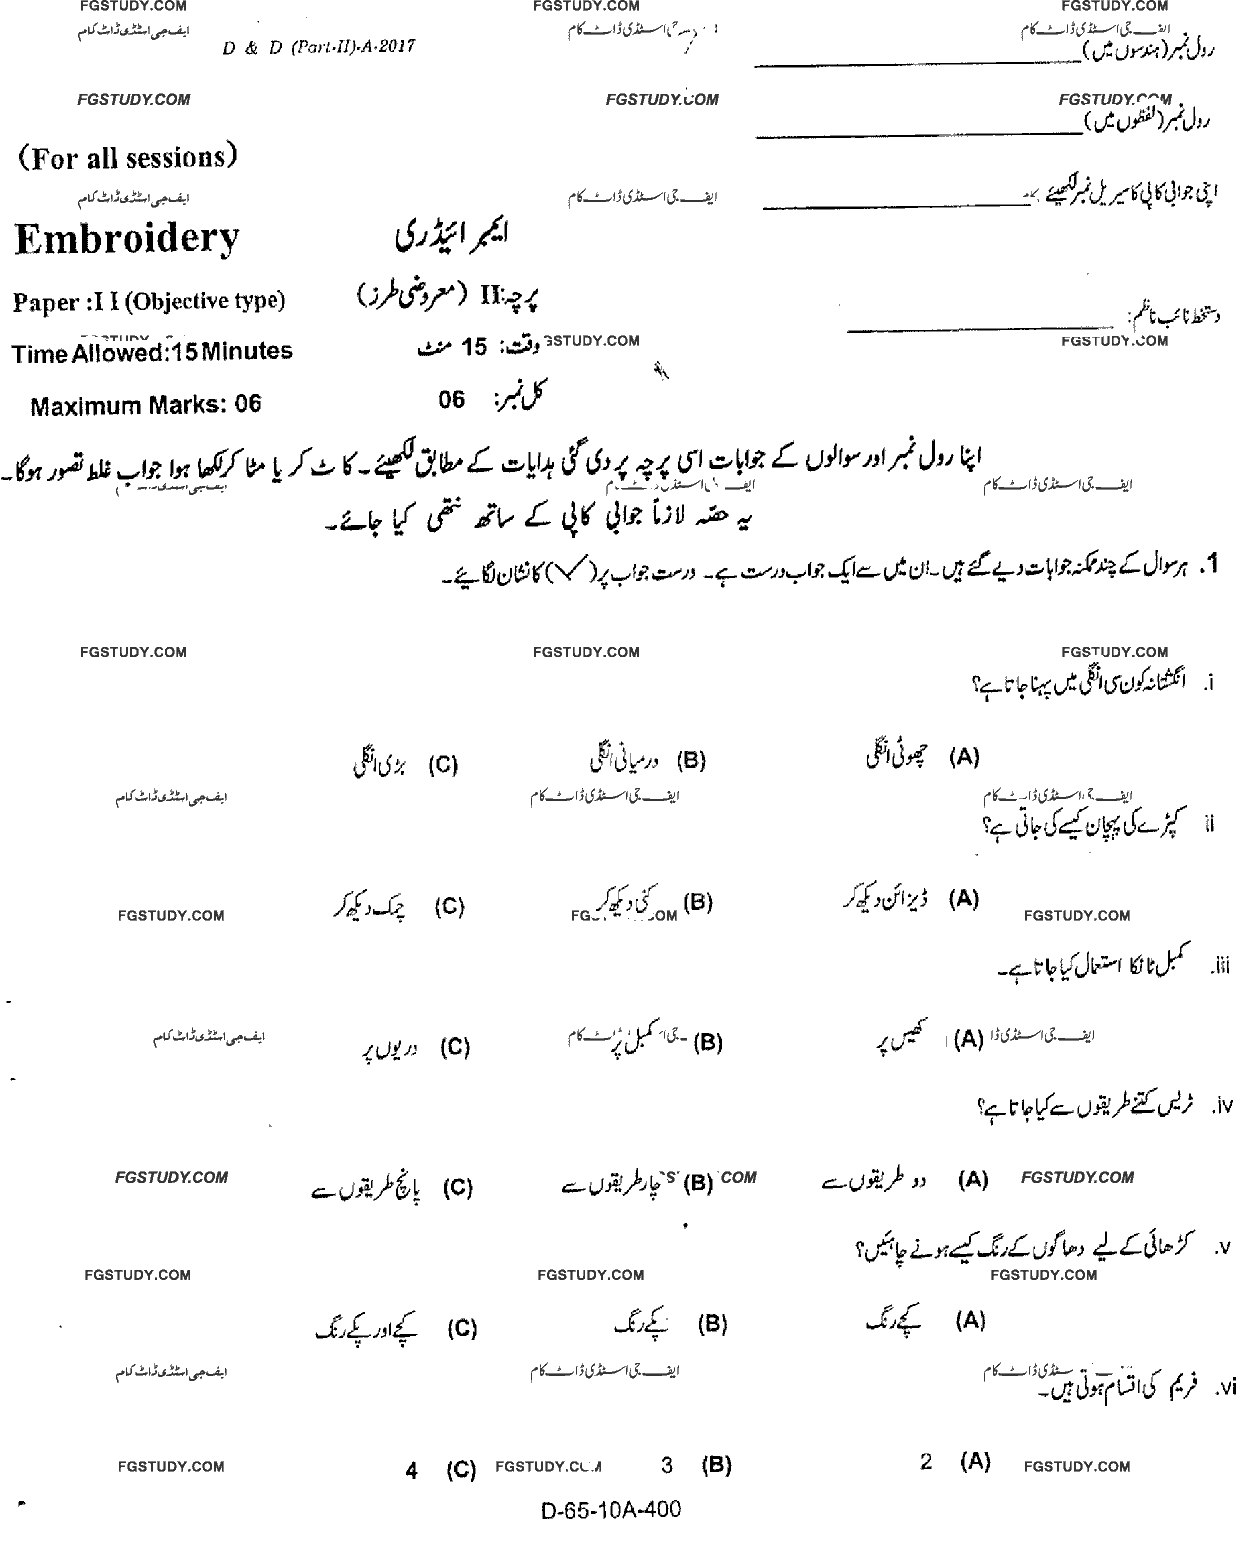 FGSTUDY.COM FGSTUDY.COM FGSTUDY.COM
ایف جی اسٹڈی ڈاٹ کام
D & D (Part-II)-A-2017
رول نمبر (ہندسوں میں)
FGSTUDY.COM FGSTUDY.COM FGSTUDY.COM
رول نمبر (لفظوں میں)
(For all sessions)
ایف جی اسٹڈی ڈاٹ کام ایف جی اسٹڈی ڈاٹ کام
اپنی جوابی کاپی کا سیریل نمبر لکھیئے
Embroidery ایمبرائیڈری
Paper :I I (Objective type) پرچہ:II (معروضی طرز)
دستخط نائب ناظم:
FGSTUDY.COM
Time Allowed:15 Minutes وقت: 15 منٹ
Maximum Marks: 06 کل نمبر: 06
اپنا رول نمبر اور سوالوں کے جوابات اسی پرچہ پر دی گئی ہدایات کے مطابق لکھیئے۔ کاٹ کر یا مٹا کر لکھا ہوا جواب غلط تصور ہوگا۔
ایف جی اسٹڈی ڈاٹ کام
یہ حصّہ لازماً جوابی کاپی کے ساتھ نتھی کیا جائے۔
1. ہر سوال کے چند ممکنہ جوابات دیے گئے ہیں۔ ان میں سے ایک جواب درست ہے۔ درست جواب پر (✓) کا نشان لگائیے۔
FGSTUDY.COM FGSTUDY.COM FGSTUDY.COM
i. انگشتانہ کون سی انگلی میں پہنا جاتا ہے؟
(A) چھوٹی انگلی (B) درمیانی انگلی (C) بڑی انگلی
ایف جی اسٹڈی ڈاٹ کام ایف جی اسٹڈی ڈاٹ کام ایف جی اسٹڈی ڈاٹ کام
ii کپڑے کی پہچان کیسے کی جاتی ہے؟
(A) ڈیزائن دیکھ کر (B) کنی دیکھ کر (C) چمک دیکھ کر
FGSTUDY.COM FGSTUDY.COM
iii. کمبل ٹانکا استعمال کیا جاتا ہے۔
(A) کھیس پر (B) کمبل پر (C) دریوں پر
ایف جی اسٹڈی ڈاٹ کام
iv. ٹریس کتنے طریقوں سے کیا جاتا ہے؟
(A) دو طریقوں سے (B) چار طریقوں سے (C) پانچ طریقوں سے
FGSTUDY.COM FGSTUDY.COM
v. کڑھائی کے لیے دھاگوں کے رنگ کیسے ہونے چاہئیں؟
FGSTUDY.COM FGSTUDY.COM FGSTUDY.COM
(A) کچے رنگ (B) پکے رنگ (C) کچے اور پکے رنگ
ایف جی اسٹڈی ڈاٹ کام ایف جی اسٹڈی ڈاٹ کام
vi. فریم کی اقسام ہوتی ہیں۔
(A) 2 (B) 3 (C) 4
FGSTUDY.COM FGSTUDY.COM FGSTUDY.COM
D-65-10A-400